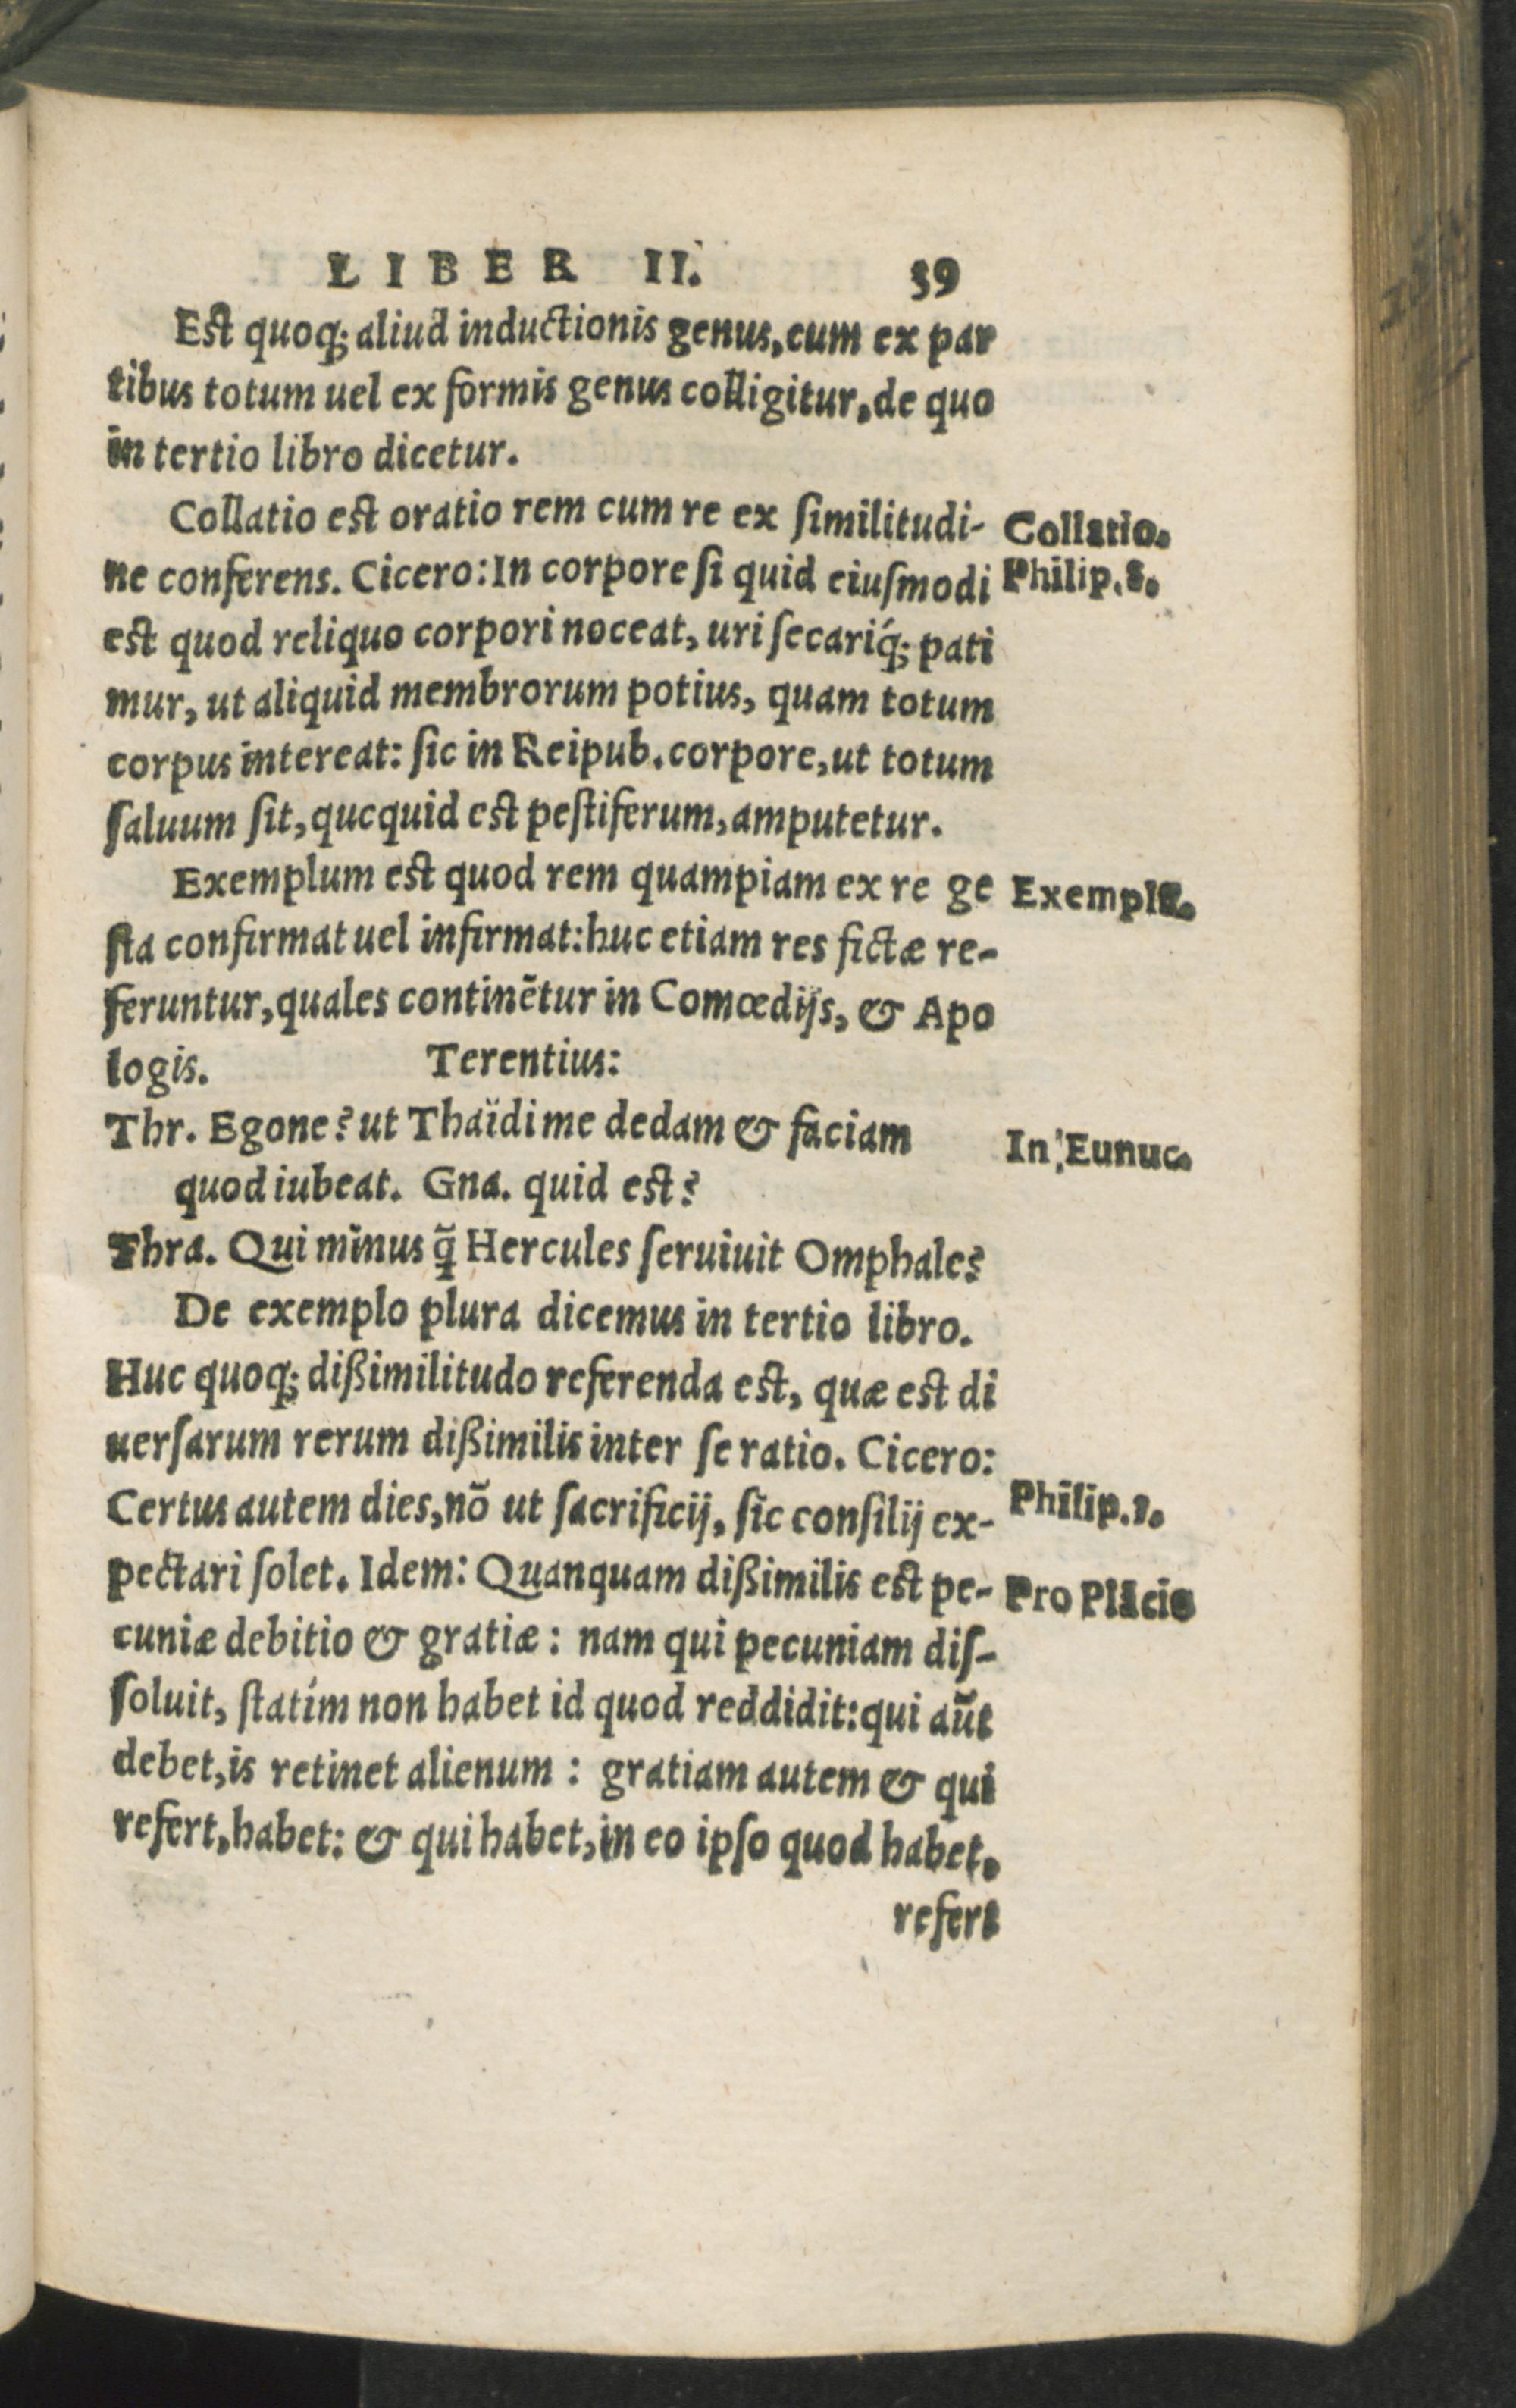 LIBER II. 39
Est quoq; aliud inductionis genus, cum ex par
tibus totum uel ex formis genus colligitur, de quo
in tertio libro dicetur.
Collatio est oratio rem cum re ex ſimilitudi- Collatio.
ne conferens. Cicero: In corpore ſi quid eiuſmodi Philip. 8.
est quod reliquo corpori noceat, uri ſecariq́; pati
mur, ut aliquid membrorum potius, quam totum
corpus intereat: ſic in Reipub. corpore, ut totum
ſaluum ſit, qucquid est peſtiferum, amputetur.
Exemplum est quod rem quampiam ex re ge
ſta confirmat uel infirmat: huc etiam res fictæ re-
feruntur, quales continẽtur in Comœdijs, & Apo
logis. Terentius:
Thr. Egone? ut Thaïdi me dedam & faciam In Eunuc.
quod iubeat. Gna. quid est?
Thra. Qui minus q̃ Hercules ſeruiuit Omphale?
De exemplo plura dicemus in tertio libro.
Huc quoq; dißimilitudo referenda est, quæ est di
uerſarum rerum dißimilis inter ſe ratio. Cicero:
Certus autem dies, nõ ut ſacrificij, ſic conſilij ex- Philip. 1.
pectari ſolet. Idem: Quanquam dißimilis est pe- Pro Plãcio
cuniæ debitio & gratiæ: nam qui pecuniam diſ-
ſoluit, ſtatim non habet id quod reddidit: qui aũt
debet, is retinet alienum: gratiam autem & qui
refert, habet: & qui habet, in eo ipſo quod habet.
refert